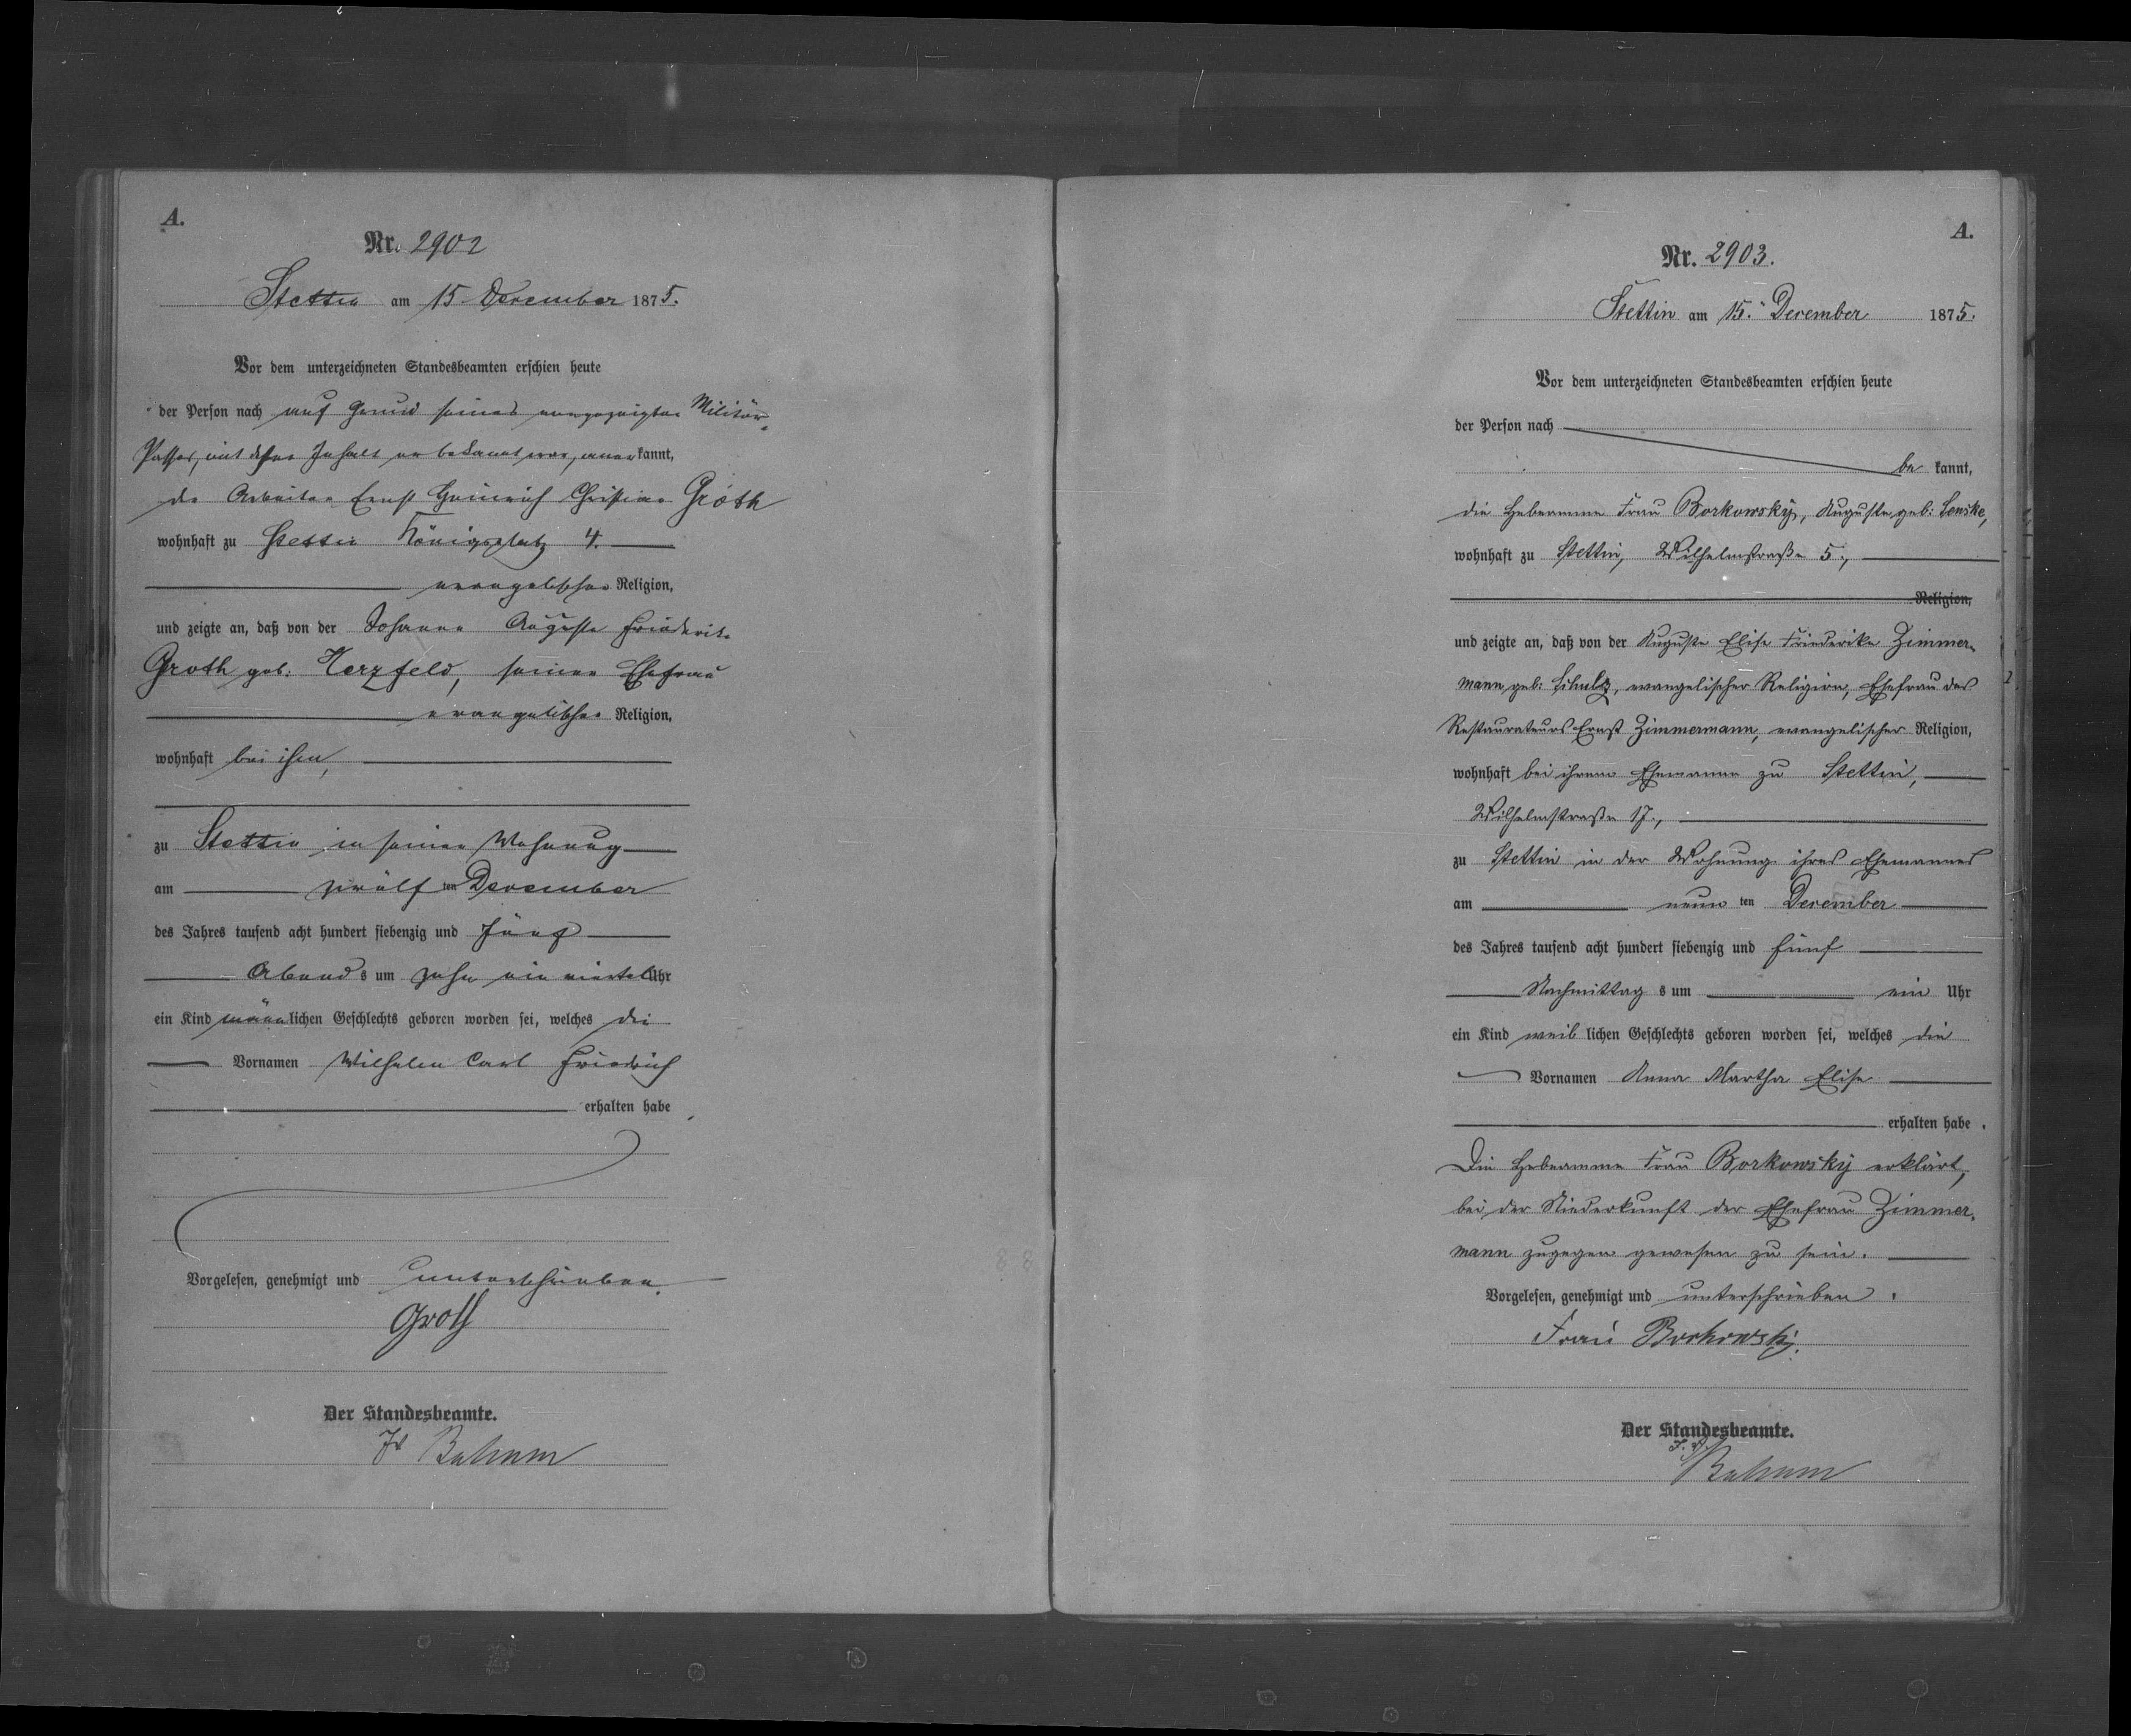 A.
Nr. 2902
Stettin am 15. December 1875.
Vor dem unterzeichneten Standesbeamten erschien heute
der Person nach auf Grund seines vorgezeigten Militär-
Passes, mit dessen Inhalt er bekannt war, anerkannt,
der Arbeiter Ernst Heinrich Christian Groth
wohnhaft zu Stettin Königsplatz 4.
evangelischer Religion,
und zeigte an, daß von der Johanne Auguste Friederike
Groth geb: Herzfeld, seiner Ehefrau
evangelischer Religion,
wohnhaft bei ihm,
zu Stettin in seiner Wohnung
am zwölf ten December
des Jahres tausend acht hundert siebenzig und fünf
Abends um zehn ein viertel Uhr
ein Kind männlichen Geschlechts geboren worden sei, welches die
Vornamen Wilhelm Carl Friedrich
erhalten habe
Vorgelesen, genehmigt und unterschrieben.
Groth
Der Standesbeamte.
A.
Nr. 2903.
Stettin am 15. December 1875.
Vor dem unterzeichneten Standesbeamten erschien heute
der Person nach
be kannt,
die Hebeamme Frau Borkowsky, Auguste geb: Lenske,
wohnhaft zu Stettin, Wilhelmstraße 5.,
Religion,
und zeigte an, daß von der Auguste Elise Friederike Zimmer-
mann geb: Schulz, evangelischer Religion, Ehefrau des
Restaurateurs Ernst Zimmermann, evangelischer Religion,
wohnhaft bei ihrem Ehemanne zu Stettin,
Wilhelmstraße 17.,
zu Stettin in der Wohnung ihres Ehemannes
am neun ten December
des Jahres tausend acht hundert siebenzig und fünf
Nachmittag s um ein Uhr
ein Kind weib lichen Geschlechts geboren worden sei, welches die
Vornamen Anna Martha Elise
erhalten habe.
Die Hebeamme Frau Borkowsky erklärt,
bei der Niederkunft der Ehefrau Zimmer-
mann zugegen gewesen zu sein.
Vorgelesen, genehmigt und unterschrieben.
Frau Borkowsky.
Der Standesbeamte.